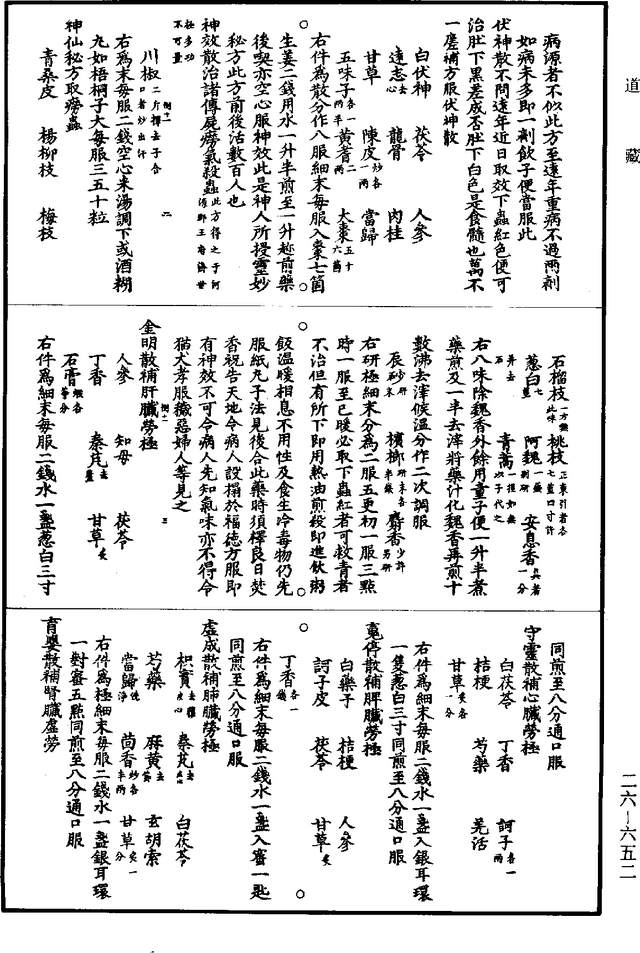 道藏
病源者不似此方至遠年重病不過兩劑
如病未多即一劑飲子便當服此
伏神散不問遠年近日取效下蟲紅色便可
治肚下黑差成否肚下白色是食髓也萬不
一塵補方服伏坤散
白伏神 茯苓 人參
遠志去心 龍骨 肉桂
甘草 陳皮炒各一兩 當歸
五味子各一兩半 黃蓍二兩 大棗五十六箇
右件為散分作八服細末每服入棗七箇
生姜二錢用水一升半煎至一升趂前藥
後喫亦空心服神效此是神人所授靈妙
秘方此方前後活數百人也
神效散治諸傳屍癆氣殺蟲此方得之于河王府濟世
極多功不可量
川椒二斤擇去子合口者炒出汗
右為末每服二錢空心米湯調下或酒糊
丸如梧桐子大每服三五十粒
神仙秘方取癆蟲
青桑皮 楊柳枝 梅枝
石榴枝一方無此味 桃枝正東引者各七莖口寸許
蔥白七莖 阿魏一錢別研 安息香一分
弄去石 青蒿一握如無以子代之
右八味除魏香外餘用童子便一升半煮
藥煎及一半去滓將藥汁化魏香再煎十
數沸去滓候溫分作二次調服
辰砂研 檳榔研末各半錢 麝香少許另研
右研極細末分為二服五更初一服三點
時一服至巳暖必取下蟲紅者可救青者
不治但有所下即用熱油煎綏即進飲粥
飯溫暖相息不用性及食生冷毒物仍先
服紙丸子法見後合此藥時須擇良日焚
香祝告天地令病人設榻於福德方服即
有神效不可令病人先知氣味亦不得令
猫犬孝服穢惡婦人等見之
金明散補肝臟勞極
人參 知母 茯苓
丁香 秦艽去蘆 甘草炙
石膏煅各等分
右件為細末每服二錢水一盞蔥白三寸
同煎至八分通口服
守靈散補心臟勞極
白茯苓 丁香 訶子各一兩
桔梗 芍藥 羌活
甘草炙各一分
右件為細末每服二錢水一盞入銀耳環
一隻蔥白三寸同煎至八分通口服
魂停散補脾臟勞極
白藥子 桔梗 人參
訶子皮 茯苓 甘草炙
丁香各一錢
右件為細末每服二錢水一盞入蜜一匙
同煎至八分通口服
虛成散補肺臟勞極
枳實去穰 秦艽去 白茯苓
芍藥 麻黃去節 玄胡索
當歸洗淨 茴香炒各半兩 甘草炙一分
右件為極細末每服二錢水一盞銀耳環
一對蜜五點同煎至八分通口服
育嬰散補腎臟虛勞
二六—六五二